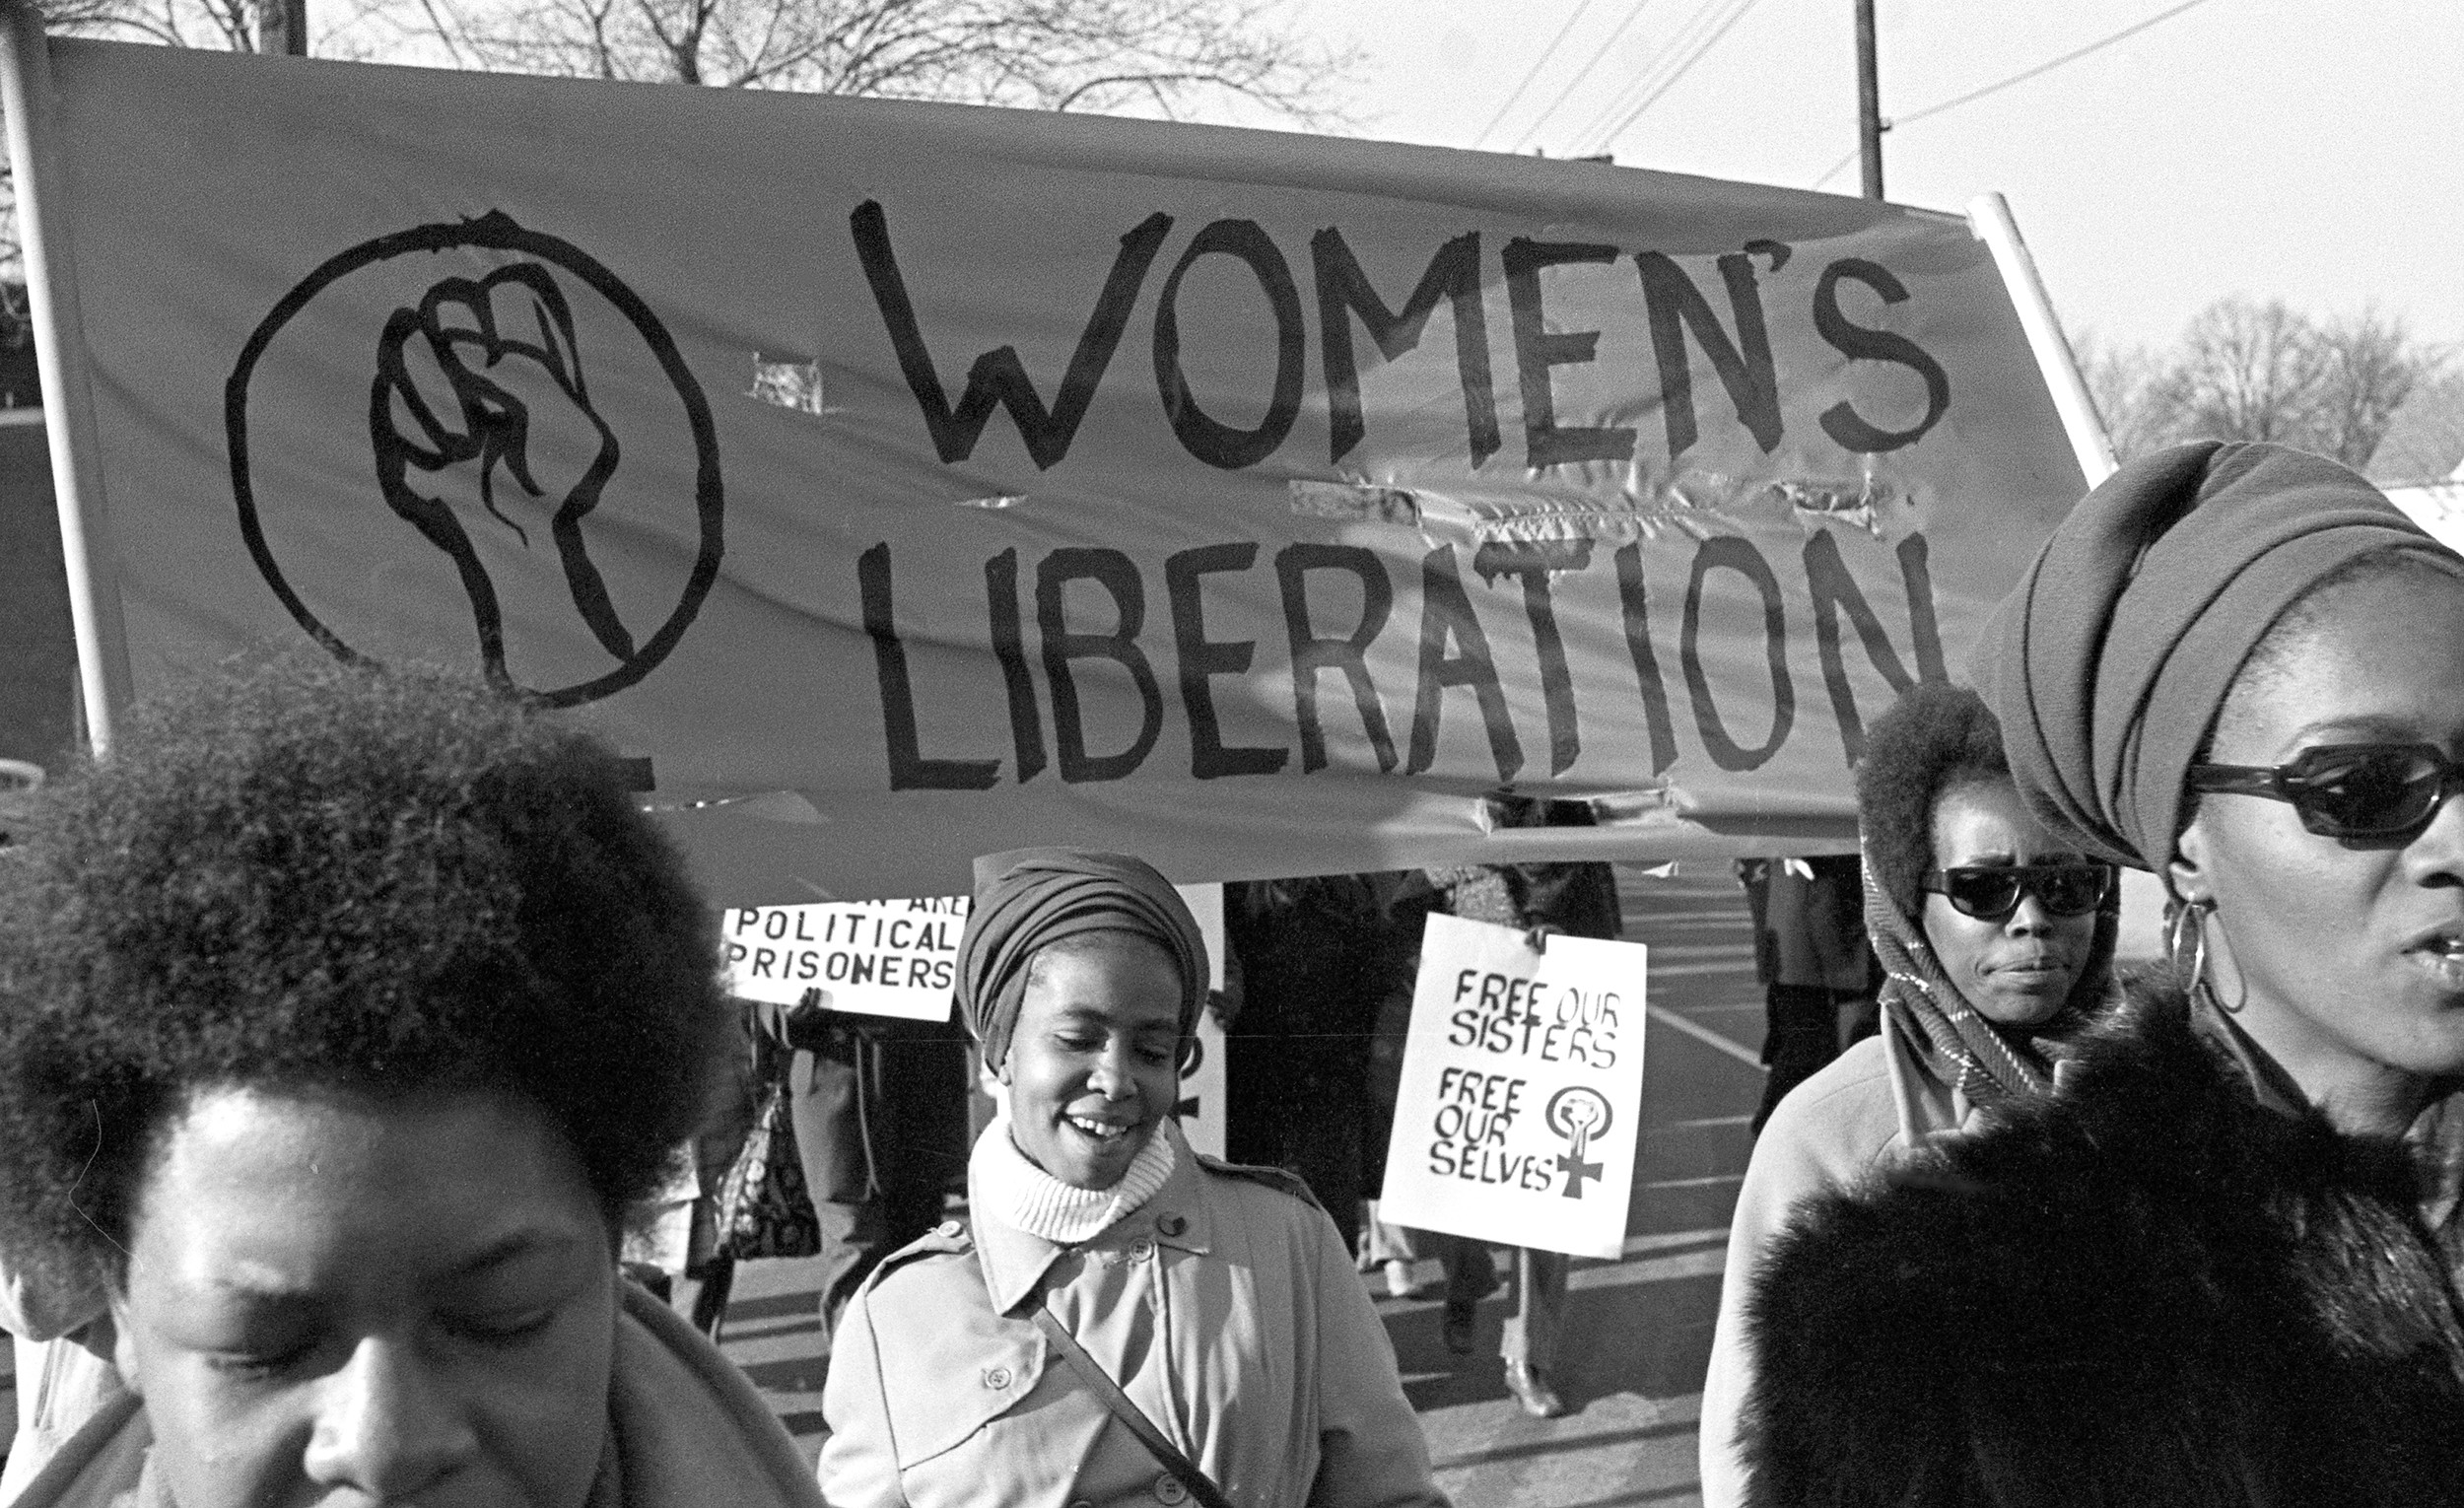 WOMEN'S
LIBERATION
ARE
POLITICAL
PRISONERS
FREE OUR
SISTERS
FREE
OUR
SELVES